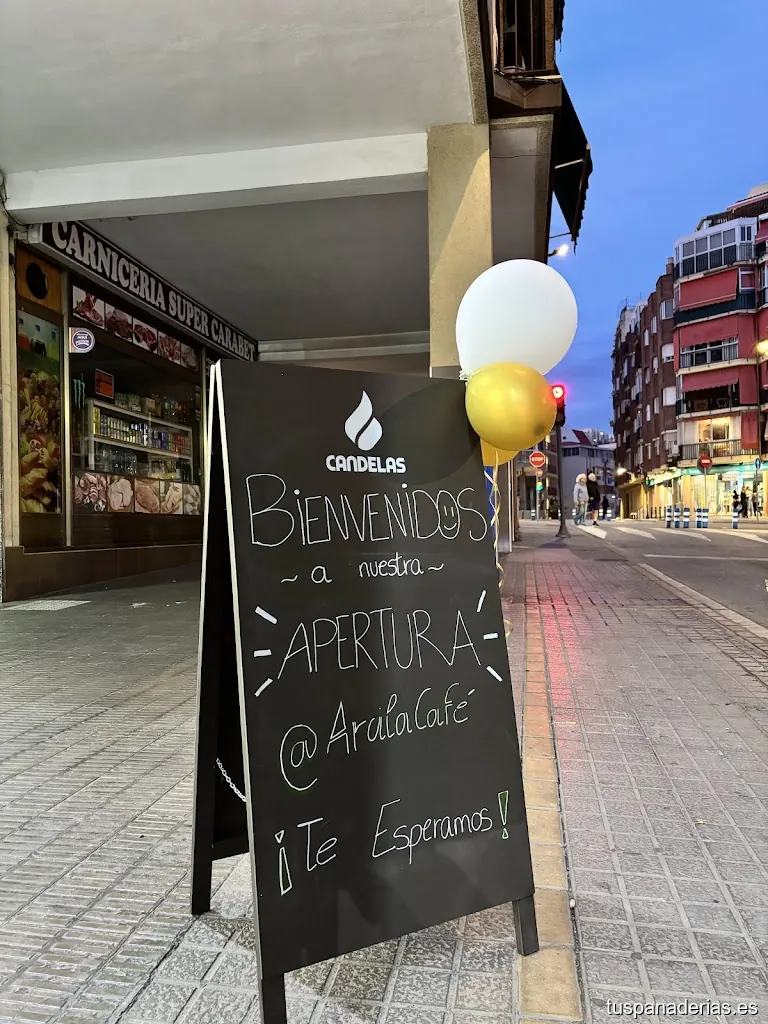 CARNICERIA SUPER CARABET
CANDELAS
BIENVENIDOS
~ a nuestra ~
APERTURA
@AralaCafé
¡Te Esperamos!
STOP
tuspanaderias.es